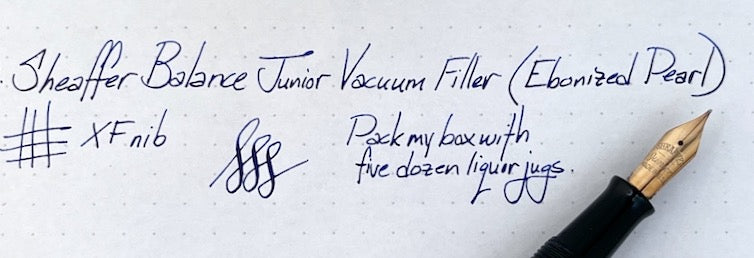 Sheaffer Balance Junior Vacuum Filler (Ebonized Pearl)
XF nib
Pack my box with
five dozen liquor jugs.